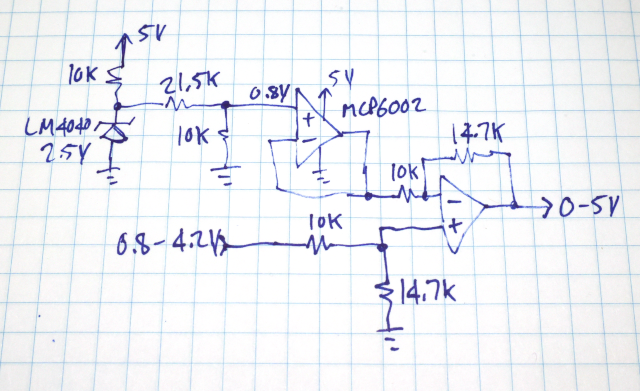 5V
10K
21.5K
0.8V
5V
MCP6002
LM4040
2.5V
10K
14.7K
10K
10K
0.8-4.2V
0-5V
14.7K
+
-
-
+